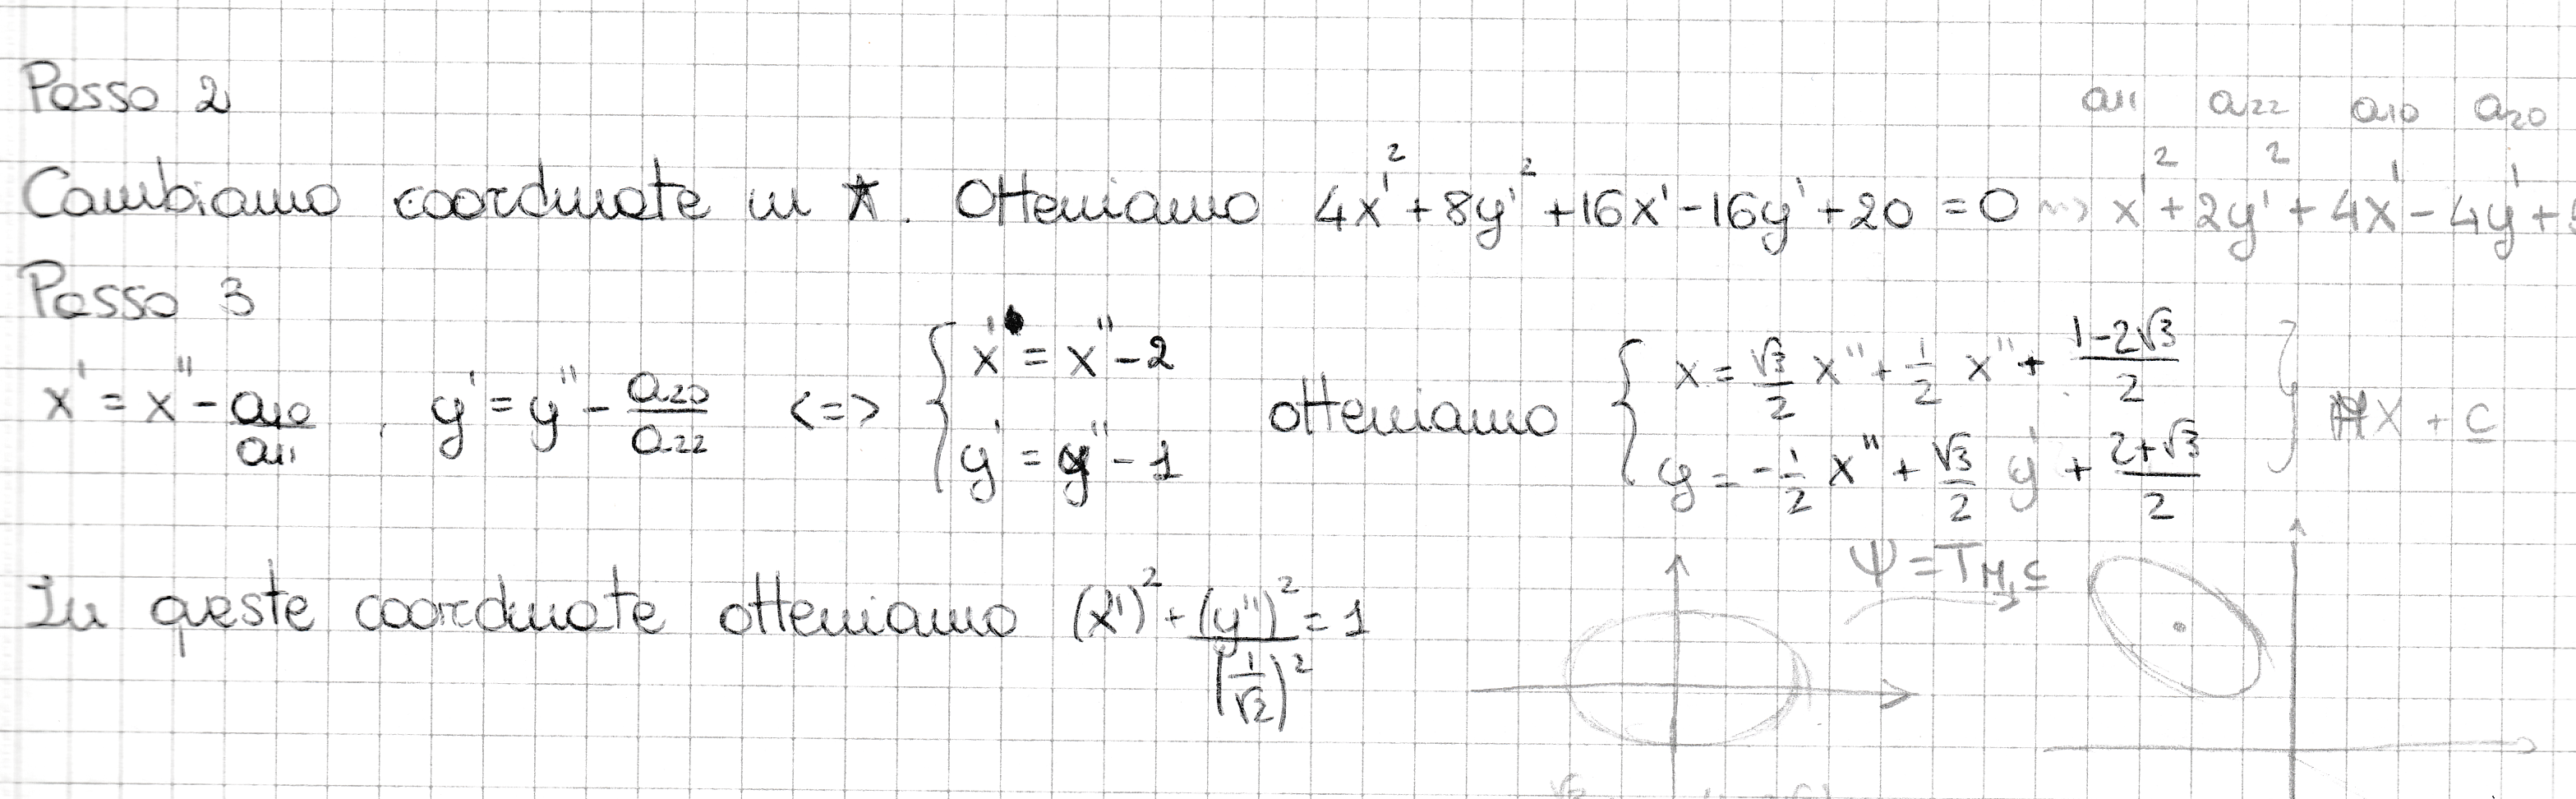 Passo 2
a₁₁ a₂₂ a₁₀ a₂₀
Cambiamo coordinate in ★. Otteniamo 4x'² + 8y'² + 16x' - 16y' + 20 = 0 ⇝ x'² + 2y'² + 4x' - 4y' + 5
Passo 3
x' = x'' - a₁₀/a₁₁ , y' = y'' - a₂₀/a₂₂ <=> { x' = x'' - 2 y' = y'' - 1 otteniamo { x = √3/2 x'' + 1/2 x'' + (1-2√3)/2 y = -1/2 x'' + √3/2 y' + (2+√3)/2 } MX + c
ψ = T_M,c
In queste coordinate otteniamo (x'')² + (y'')²/(1/√2)² = 1